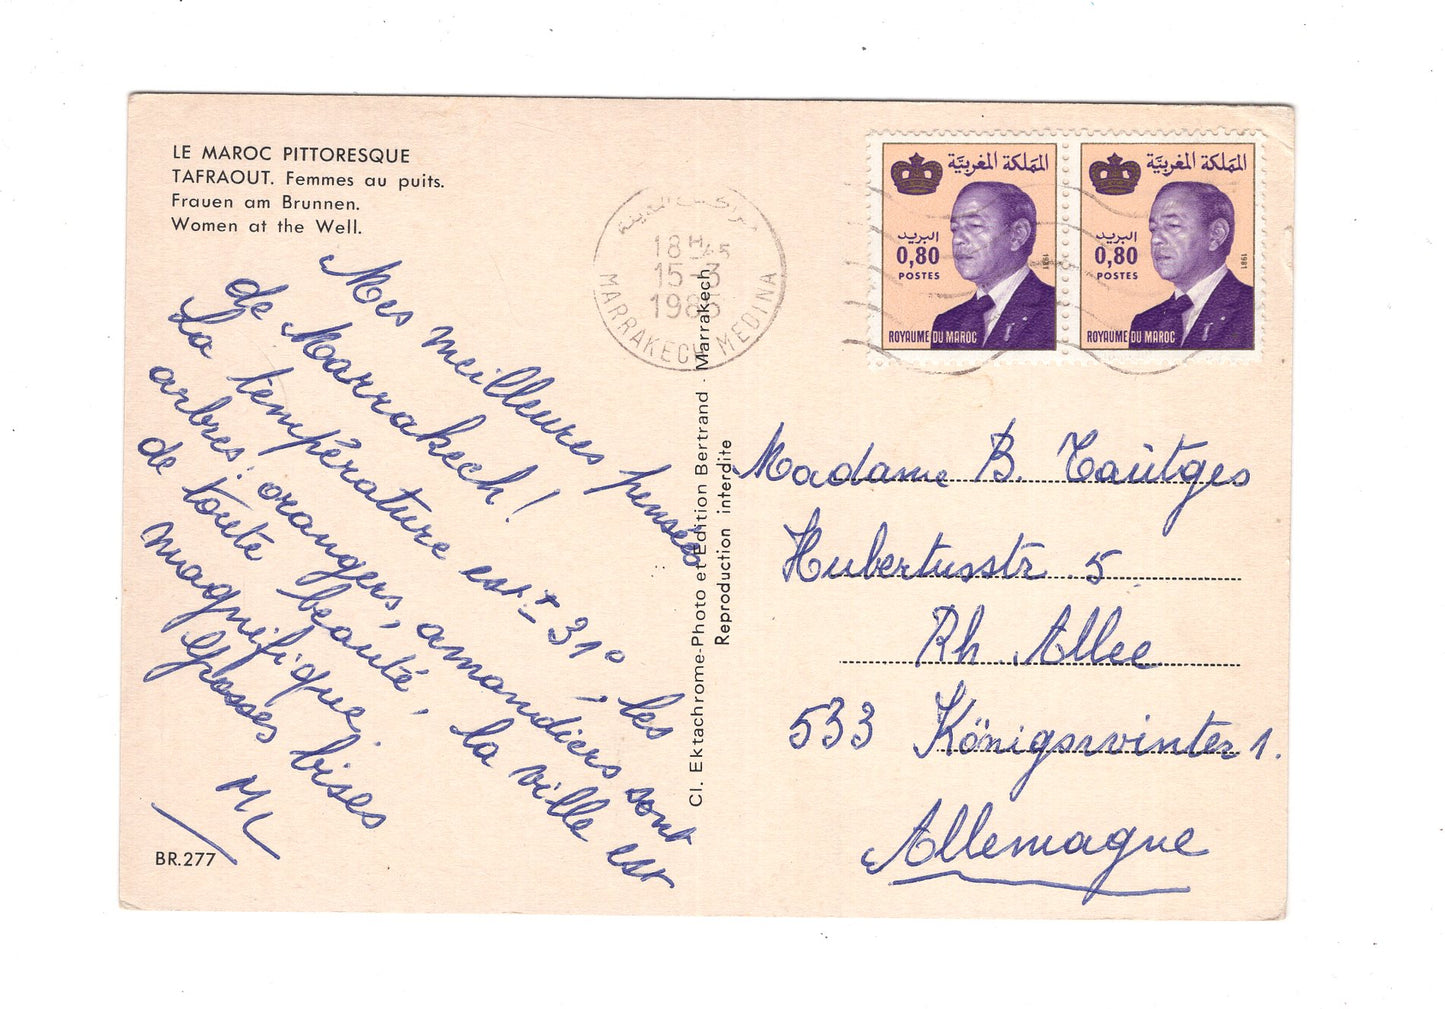 LE MAROC PITTORESQUE
TAFRAOUT. Femmes au puits.
Frauen am Brunnen.
Women at the Well.
Mes meilleures pensées
de Marrakech !
La température est + 31°, les
arbres: orangers, amandiers sont
de toute beauté, la ville est
magnifique.
Grosses bises
BR.277
مراكش المدينة
18H45
15-3
1985
MARRAKECH MEDINA
Cl. Ektachrome-Photo et Edition Bertrand - Marrakech
Reproduction interdite
المملكة المغربية
البريد
0,80
POSTES
1981
ROYAUME DU MAROC
المملكة المغربية
البريد
0,80
POSTES
1981
ROYAUME DU MAROC
Madame B. Taütges
Hubertusstr. 5
Rh. Allee
533 Königswinter 1.
Allemagne